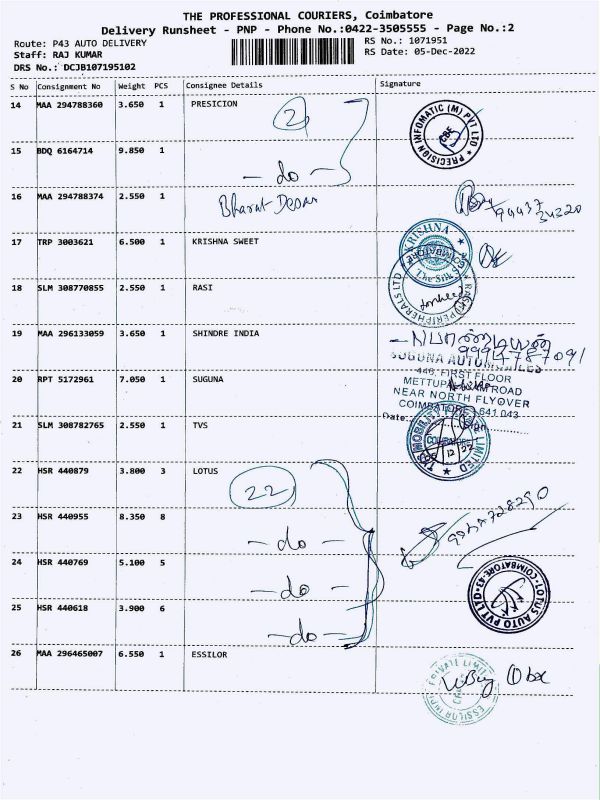 THE PROFESSIONAL COURIERS, Coimbatore
Delivery Runsheet - PNP - Phone No.:0422-3505555 - Page No.:2
Route: P43 AUTO DELIVERY
Staff: RAJ KUMAR
DRS No.: DCJB107195102
RS No.: 1071951
RS Date: 05-Dec-2022
S No Consignment No Weight PCS Consignee Details Signature
14 MAA 294788360 3.650 1 PRESICION
2
PRECISION INFOMATIC (M) PVT LTD
CBE
15 BDQ 6164714 9.850 1
- do -
16 MAA 294788374 2.550 1 Bharat
94437
34220
17 TRP 3003621 6.500 1 KRISHNA SWEET
KRISHNA
COIMBATORE
The Silk
18 SLM 308770855 2.550 1 RASI
RASI PERIPHERALS LTD
19 MAA 296133059 3.650 1 SHINDRE INDIA
20 RPT 5172961 7.050 1 SUGUNA
SUGUNA
446, FIRST FLOOR
ROAD
NEAR NORTH FLYOVER
COIMBATORE - 641 043
Date
Sign
21 SLM 308782765 2.550 1 TVS
MOBILITY LIMITED
22 HSR 440879 3.800 3 LOTUS
22
23 HSR 440955 8.350 8
- do -
24 HSR 440769 5.100 5
- do -
LOTUS AUTO PVT LTD
COIMBATORE-43
25 HSR 440618 3.900 6
- do -
26 MAA 296465007 6.550 1 ESSILOR
PRIVATE LIMITED
ESSILOR